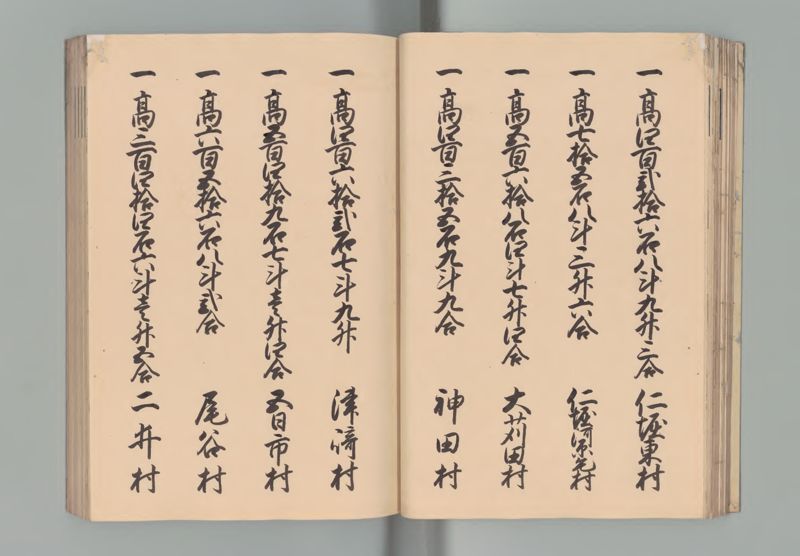 一 高四百弐拾六石八斗九升三合 仁堀東村
一 高七拾五石八斗三升六合 仁堀河原毛村
一 高五百六拾八石四斗七升四合 大苅田村
一 高四百二拾五石九斗九合 神田村
一 高四百六拾弐石七斗九升 津﨑村
一 高五百四拾九石七斗壱升四合 五日市村
一 高六百五拾六石八斗弐合 尾谷村
一 高三百四拾四石六斗壱升五合 二井村